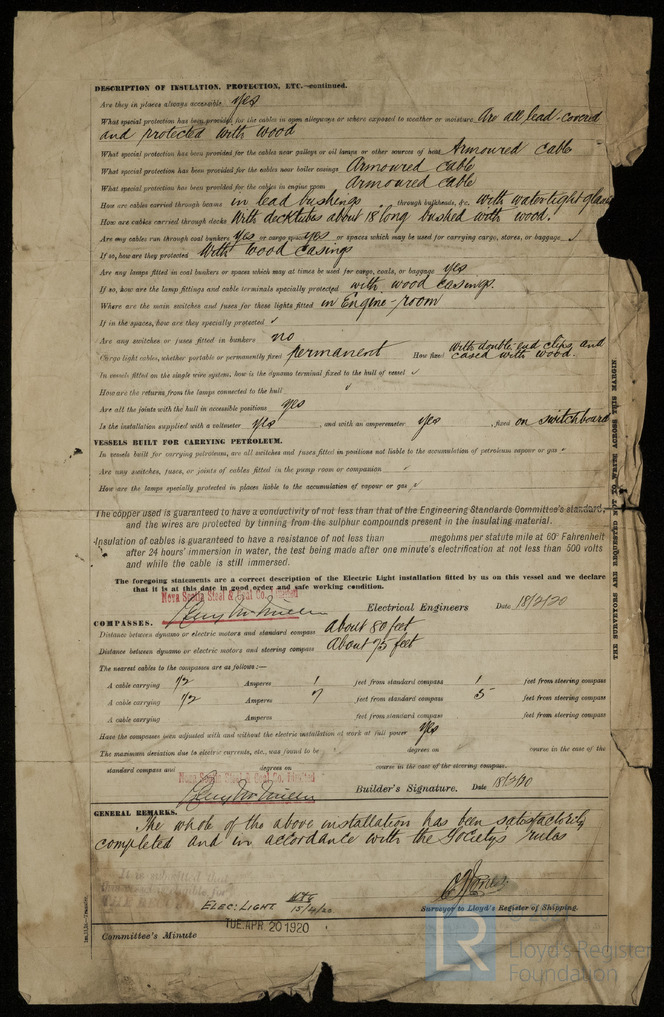 DESCRIPTION OF INSULATION, PROTECTION, ETC.—continued.
Are they in places always accessible yes
What special protection has been provided for the cables in open alleyways or where exposed to weather or moisture Are all lead-covered
and protected with wood
What special protection has been provided for the cables near galleys or oil lamps or other sources of heat Armoured cable
What special protection has been provided for the cables near boiler casings Armoured cable
What special protection has been provided for the cables in engine room Armoured cable
How are cables carried through beams in lead bushings , through bulkheads, &c. with watertight glands
How are cables carried through decks With decktubes about 18" long bushed with wood.
Are any cables run through coal bunkers yes or cargo spaces yes or spaces which may be used for carrying cargo, stores, or baggage ✓
If so, how are they protected With wood casings
Are any lamps fitted in coal bunkers or spaces which may at times be used for cargo, coals, or baggage yes
If so, how are the lamp fittings and cable terminals specially protected with wood casings.
Where are the main switches and fuses for these lights fitted in Engine-room
If in the spaces, how are they specially protected ✓
Are any switches or fuses fitted in bunkers no
Cargo light cables, whether portable or permanently fixed permanent How fixed with double-end clips and
cased with wood.
In vessels fitted on the single wire system, how is the dynamo terminal fixed to the hull of vessel ✓
How are the returns from the lamps connected to the hull ✓
Are all the joints with the hull in accessible positions yes
Is the installation supplied with a voltmeter yes , and with an amperemeter yes , fixed on switchboard
VESSELS BUILT FOR CARRYING PETROLEUM.
In vessels built for carrying petroleum, are all switches and fuses fitted in positions not liable to the accumulation of petroleum vapour or gas ✓
Are any switches, fuses, or joints of cables fitted in the pump room or companion ✓
How are the lamps specially protected in places liable to the accumulation of vapour or gas ✓
The copper used is guaranteed to have a conductivity of not less than that of the Engineering Standards Committee's standard,
and the wires are protected by tinning from the sulphur compounds present in the insulating material.
Insulation of cables is guaranteed to have a resistance of not less than megohms per statute mile at 60° Fahrenheit
after 24 hours' immersion in water, the test being made after one minute's electrification at not less than 500 volts
and while the cable is still immersed.
The foregoing statements are a correct description of the Electric Light installation fitted by us on this vessel and we declare
that it is at this date in good order and safe working condition.
Nova Scotia Steel & Coal Co. Limited
Electrical Engineers Date 18/2/20
COMPASSES.
Distance between dynamo or electric motors and standard compass About 80 feet
Distance between dynamo or electric motors and steering compass About 75 feet
The nearest cables to the compasses are as follows:—
A cable carrying 1/2 Amperes 1 feet from standard compass 1 feet from steering compass
A cable carrying 1/2 Amperes 7 feet from standard compass 5 feet from steering compass
A cable carrying Amperes feet from standard compass feet from steering compass
Have the compasses been adjusted with and without the electric installation at work at full power Yes
The maximum deviation due to electric currents, etc., was found to be degrees on course in the case of the
standard compass and degrees on course in the case of the steering compass.
Nova Scotia Steel & Coal Co. Limited
Builder's Signature. Date 18/2/20
GENERAL REMARKS.
The whole of the above installation has been satisfactorily
completed and in accordance with the Society's rules
It is submitted that
this vessel is eligible for
THE RECORD
ELEC: LIGHT 15/4/20
Surveyor to Lloyd's Register of Shipping.
TUE. APR. 20 1920
Committee's Minute
THE SURVEYORS ARE REQUESTED NOT TO WRITE ACROSS THIS MARGIN
LR
Lloyd's Register
Foundation